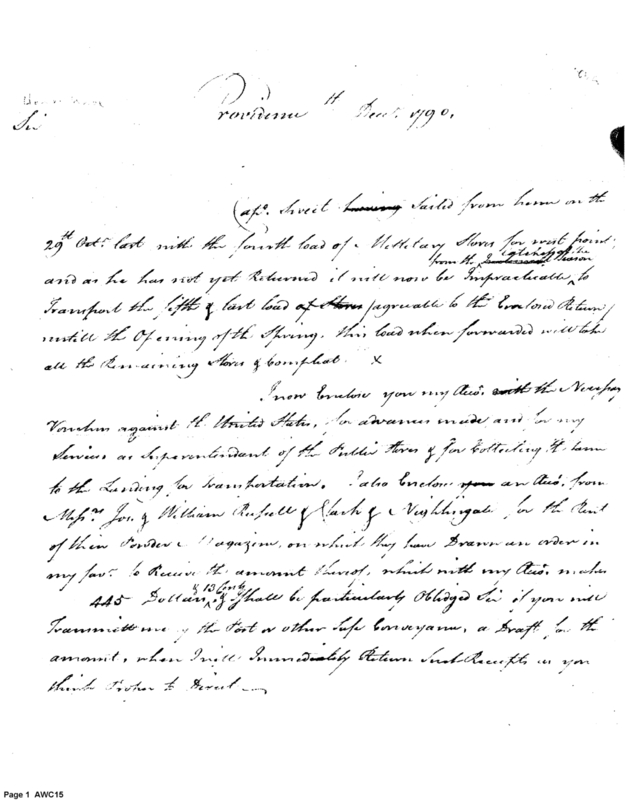 Providence th Decr. 1790.
Sir
Capt. Sweet having Sailed from hence on the
29th Octr. last with the fourth load of Millitary Stores for west point;
from the lateness of the Season
and as he has not yet Returned it will now be Impracticable, to
Transport the fifth & last load of Stores (agreeable to the Enclosed Return)
untill the Opening of the Spring, this load when forwarded will take
all the Remaining Stores & Compleat. X
I now Enclose you my Acco. with the Necessary
Vouchers against the United States, for advances made and for my
Services as Superentendant of the Public Stores & for Collecting the Same
to the Landing for Transportation. I also Enclose you an Acco. from
Messrs. Jos. & William Russell & Clark & Nightingale for the Rent
of their Powder Magazine, on which they have Drawn an order in
my favr. to Receive the amount thereof, which with my Acco. makes
& 13 Cents
445 Dollars, & I Shall be particularly Obliged Sir if you will
Transmitt me by the Post or other Safe Conveyance, a Draft for the
amount, when I will Immediately Return Such Receipts as you
think Proper to Direct
Page 1 AWC15